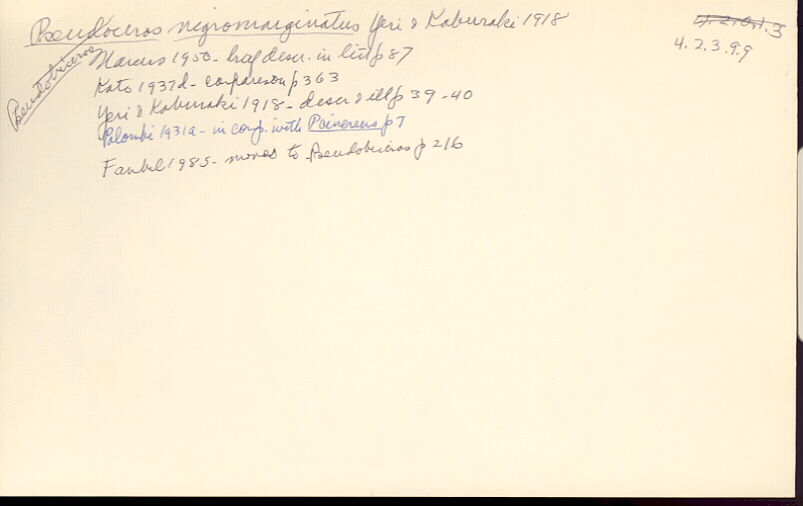 Pseudoceros nigromarginatus Yeri & Kaburaki 1918
4.2.3.9.9
Pseudobiceros
Marcus 1950 - brief descr. in lit p 87
Kato 1937d - comparison p 363
Yeri & Kaburaki 1918 - descr & ill p 39-40
Palombi 1931a - in comp. with P cinereus p 7
Faubel 1985 - moves to Pseudobiceros p 216